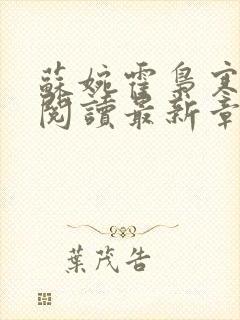 蘇婉霍梟寒
閱讀最新章
葉茂告